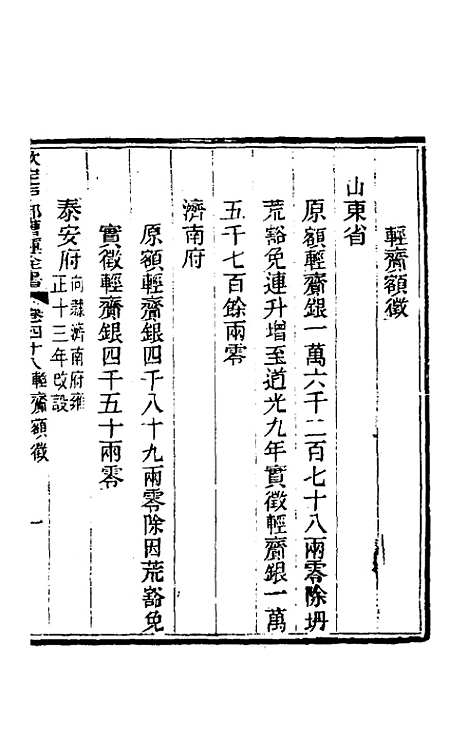 輕齎額徵
山東省
原額輕齎銀一萬六千二百七十八兩零除坍
荒豁免連升增至道光九年實徵輕齎銀一萬
五千七百餘兩零
濟南府
原額輕齎銀四千八十九兩零除因荒豁免
實徵輕齎銀四千五十兩零
泰安府向隸濟南府雍正十三年改設
欽定戶部漕運全書 卷四十八輕齎額徵 一